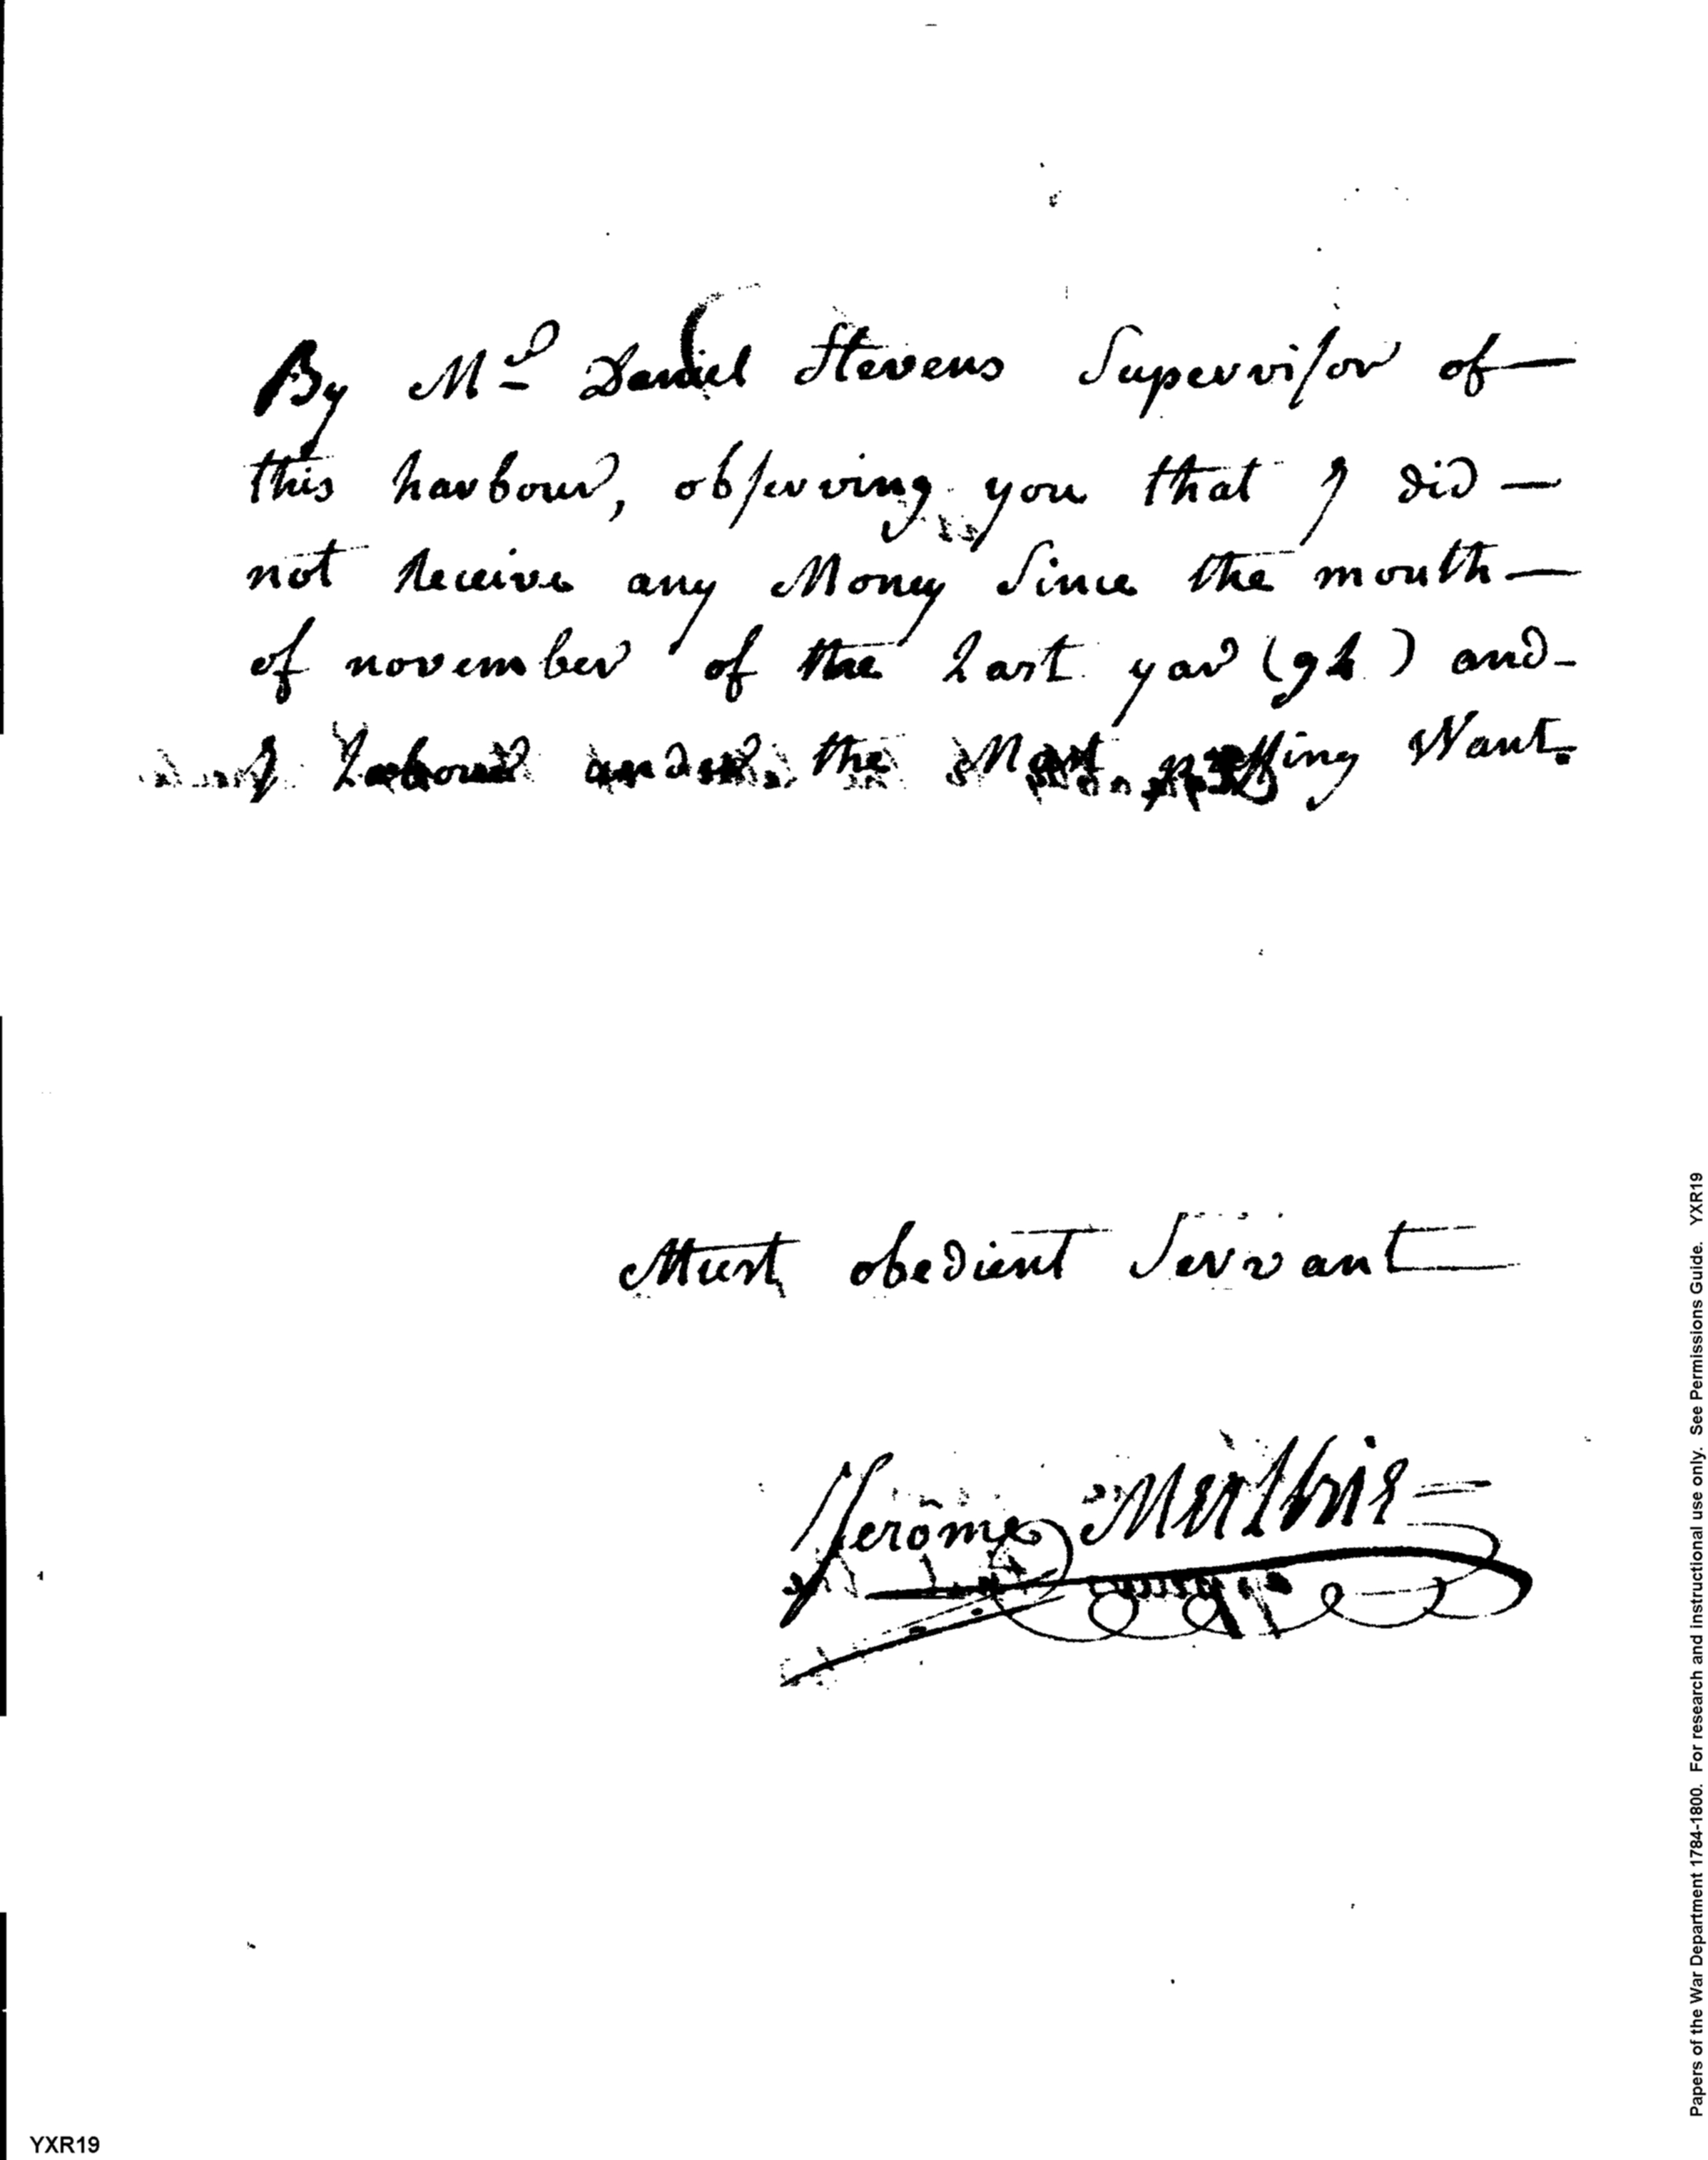 By Mr Daniel Stevens Supervisor of —
this harbour, observing you that I did —
not receive any Money Since the month —
of november of the Last yar (94) and -
I Labour under the Most pressing Want.
Must obedient Servant
Jerome
Papers of the War Department 1784-1800. For research and instructional use only. See Permissions Guide. YXR19
YXR19